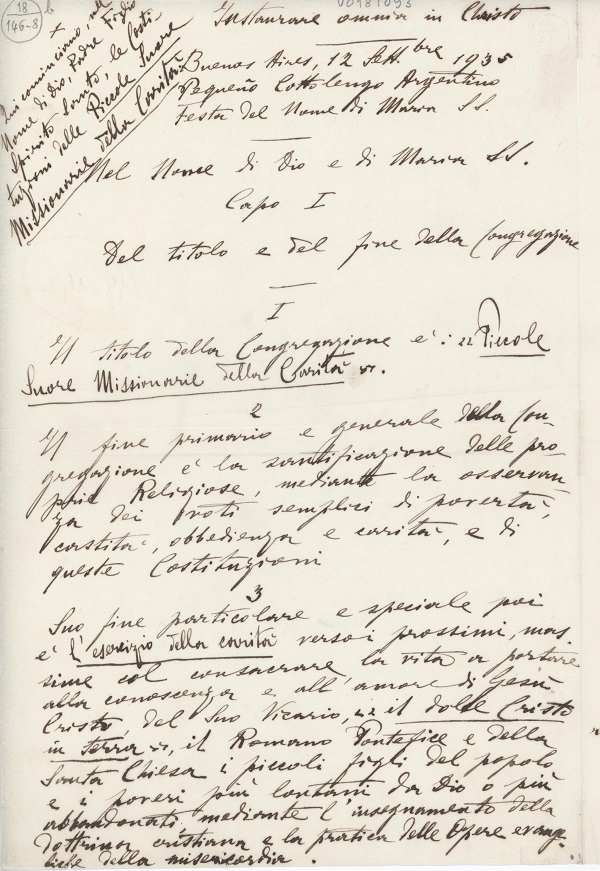 18
146-8
b
V081093
+
Qui cominciano, nel
Nome di Dio, Padre Figlio
Spirito Santo, le Costi-
tuzioni delle Piccole Suore
Missionarie della Carità
Instaurare omnia in Christo
Buenos Aires, 12 Sett.bre 1935
Pequeño Cottolengo Argentino
Festa del Nome di Maria SS.
Nel Nome di Dio e di Maria SS.
Capo I
Del titolo e del fine della Congregazione
I
Il titolo della Congregazione è: "Piccole
Suore Missionarie della Carità".
2
Il fine primario e generale della Con-
gregazione è la santificazione delle pro-
prie Religiose, mediante la osservan-
za dei voti semplici di povertà,
castità, obbedienza e carità, e di
queste Costituzioni
3
Suo fine particolare e speciale poi
è l'esercizio della carità verso i prossimi, mas-
sime col consacrare la vita a portare
alla conoscenza e all'amore di Gesù
Cristo, del Suo Vicario, "il dolce Cristo
in terra", il Romano Pontefice e della
Santa Chiesa i piccoli figli del popolo
e i poveri più lontani da Dio o più
abbandonati mediante l'insegnamento della
dottrina cristiana e la pratica delle Opere evange-
liche della misericordia.